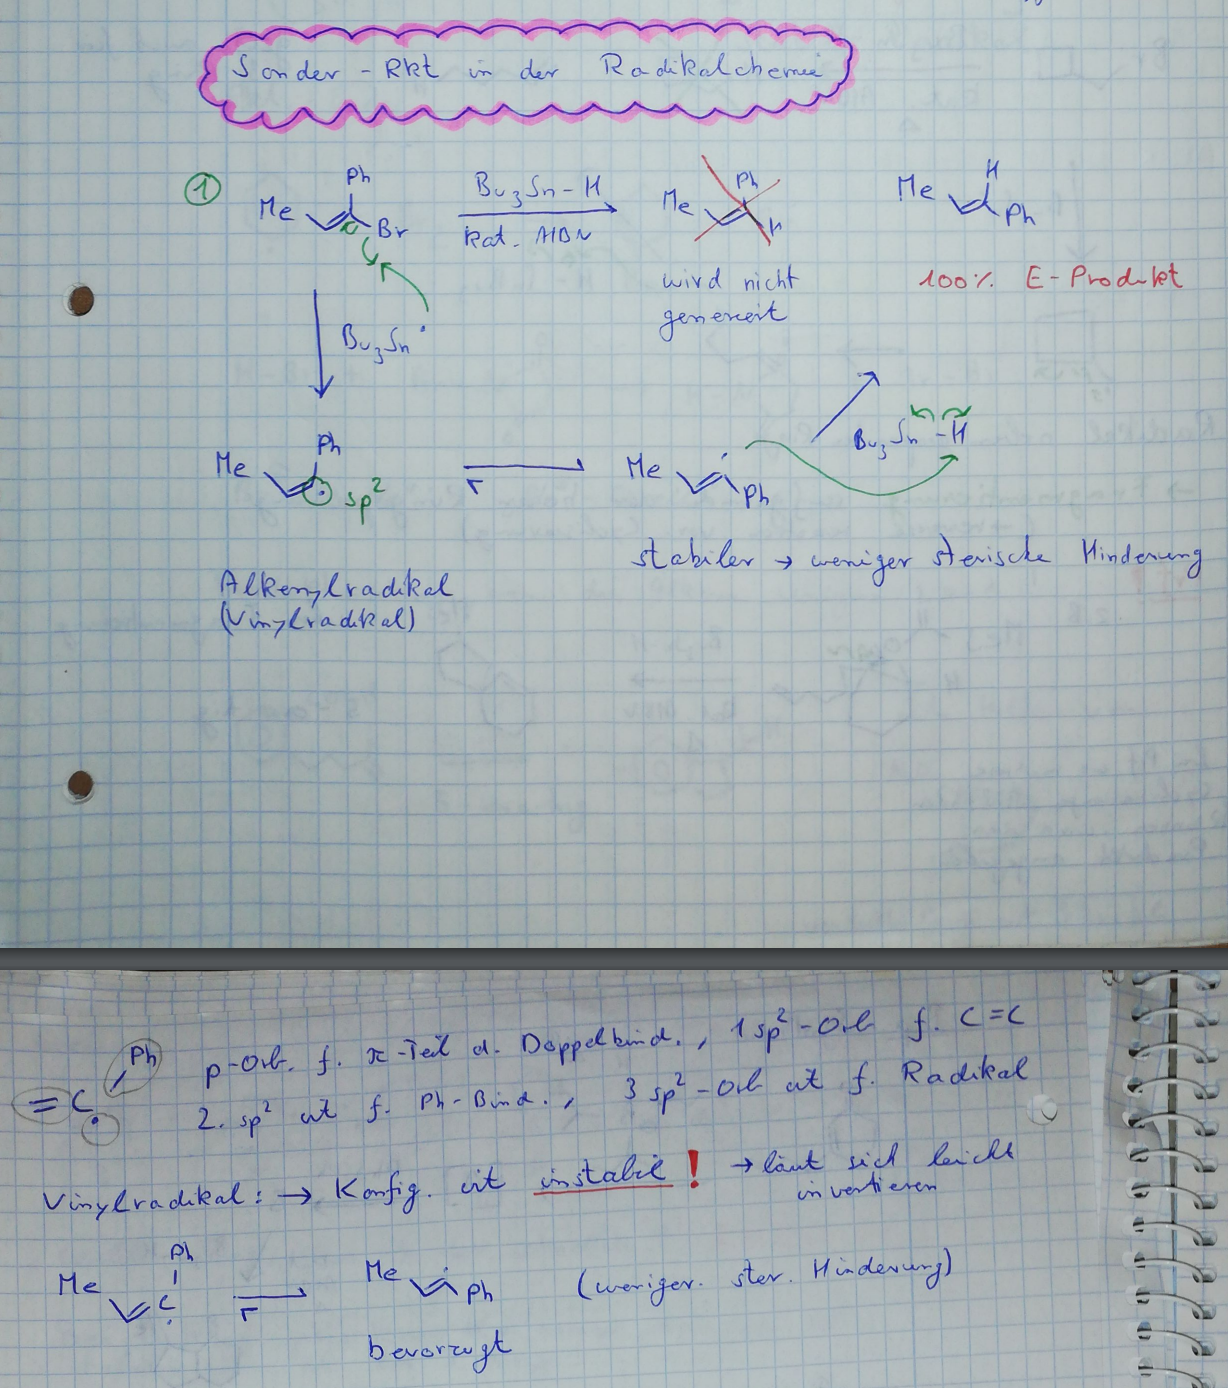 Sonder-Rkt in der Radikalchemie
1
Ph
Me
Br
Bu3Sn-H
kat. AIBN
Me
Ph
H
wird nicht
generiert
Me
H
Ph
100% E-Produkt
Bu3Sn•
Me
Ph
sp2
Me
Ph
Bu3Sn-H
stabiler → weniger sterische Hinderung
Alkenylradikal
(Vinylradikal)
=C
Ph
p-Orb. f. π-Teil d. Doppelbind., 1 sp2-Orb f. C=C
2. sp2 ist f. Ph-Bind., 3 sp2-Orb ist f. Radikal
Vinylradikal: → Konfig. ist instabil! → lässt sich leicht
invertieren
Me
Ph
C
Me
Ph
(weniger. ster. Hinderung)
bevorzugt